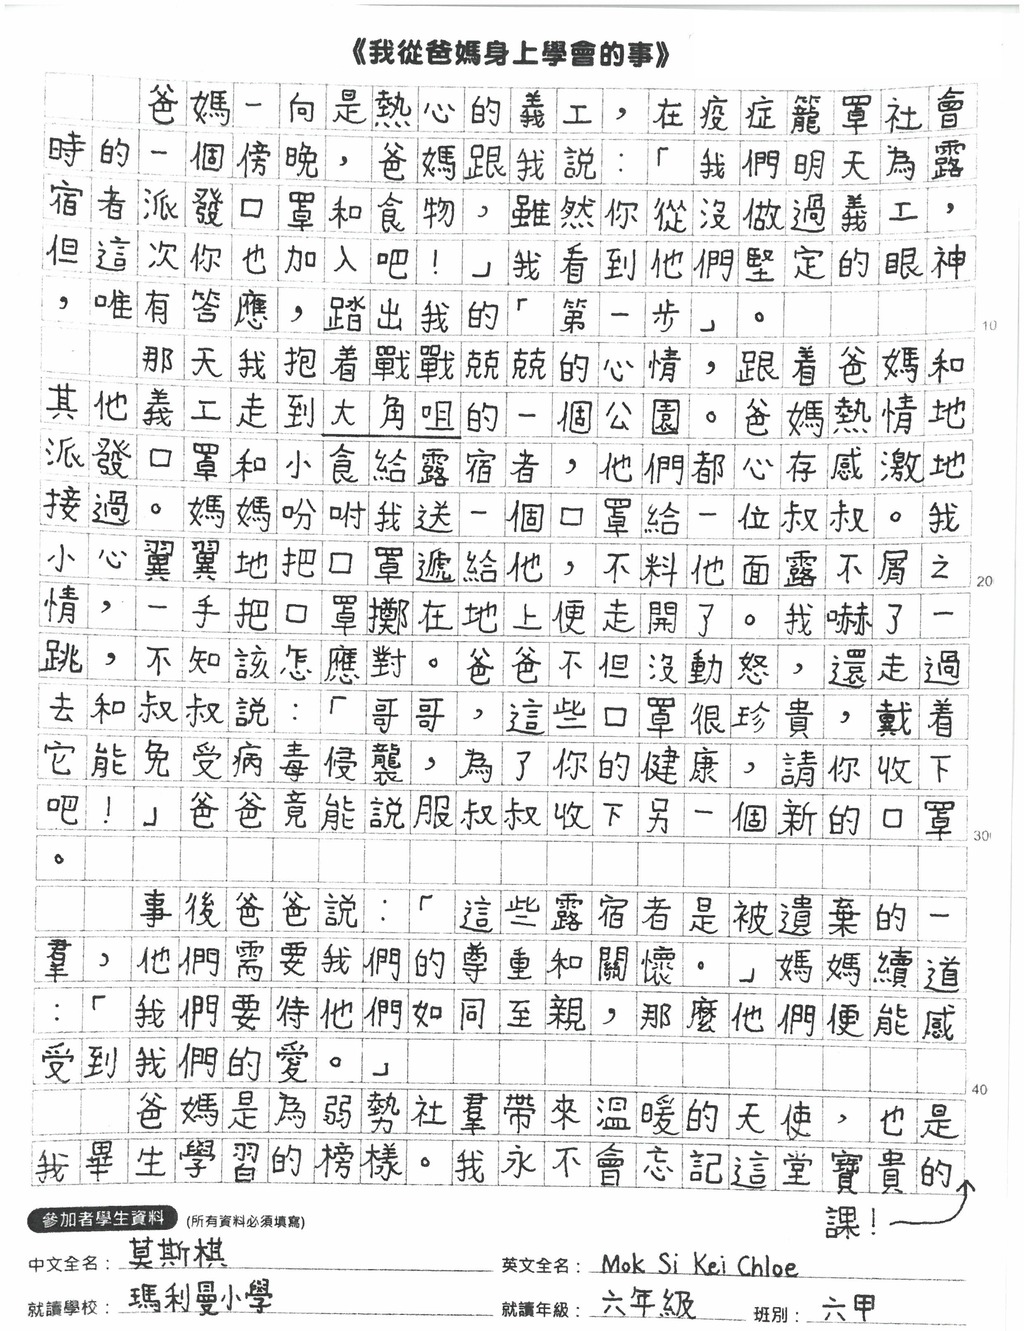 《我從爸媽身上學會的事》
爸媽一向是熱心的義工，在疫症籠罩社會
時的一個傍晚，爸媽跟我説：「我們明天為露
宿者派發口罩和食物，雖然你從沒做過義工，
但這次你也加入吧！」我看到他們堅定的眼神
，唯有答應，踏出我的「第一步」。
10
那天我抱着戰戰兢兢的心情，跟着爸媽和
其他義工走到大角咀的一個公園。爸媽熱情地
派發口罩和小食給露宿者，他們都心存感激地
接過。媽媽吩咐我送一個口罩給一位叔叔。我
小心翼翼地把口罩遞給他，不料他面露不屑之
20
情，一手把口罩擲在地上便走開了。我嚇了一
跳，不知該怎應對。爸爸不但沒動怒，還走過
去和叔叔説：「哥哥，這些口罩很珍貴，戴着
它能免受病毒侵襲，為了你的健康，請你收下
吧！」爸爸竟能説服叔叔收下另一個新的口罩
30
。
事後爸爸説：「這些露宿者是被遺棄的一
羣，他們需要我們的尊重和關懷。」媽媽續道
：「我們要待他們如同至親，那麼他們便能感
受到我們的愛。」
40
爸媽是為弱勢社羣帶來溫暖的天使，也是
我畢生學習的榜樣。我永不會忘記這堂寶貴的
課！
參加者學生資料 (所有資料必須填寫)
中文全名：莫斯棋 英文全名：Mok Si Kei Chloe
就讀學校：瑪利曼小學 就讀年級：六年級 班別：六甲